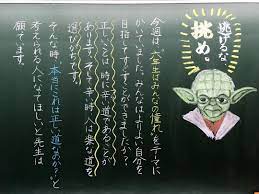 逃げるな、
挑め。
今週は、「六年生はみんなの憧れ」をテーマに
かいました。みんなはよりよい自分を
目指してすごすことができましたか？
正しいことは、時に辛い道であることが
あります。そして辛い時、人は楽な道を
選びがちです。
そんな時、「本当にこれは正しい道なのか？」と
考えられる人になってほしいと先生は
願ってます。